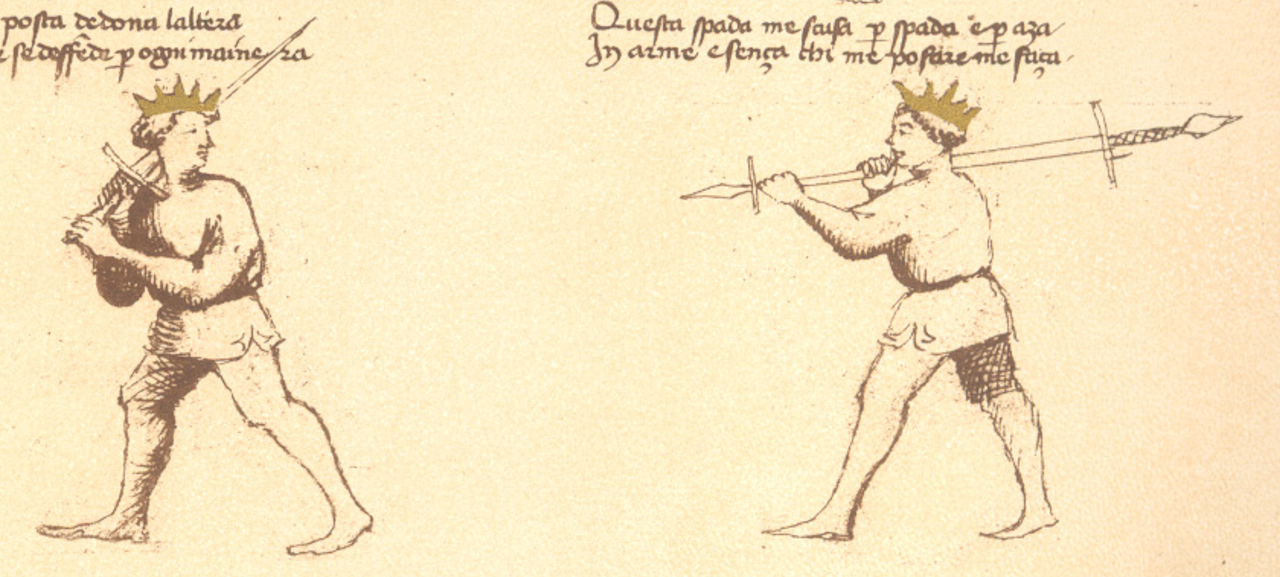 posta dedona laltera
se deffēde p ogni maine ra
Questa spada me scusa p spada e p aza
In arme e sença chi me posare me faça.